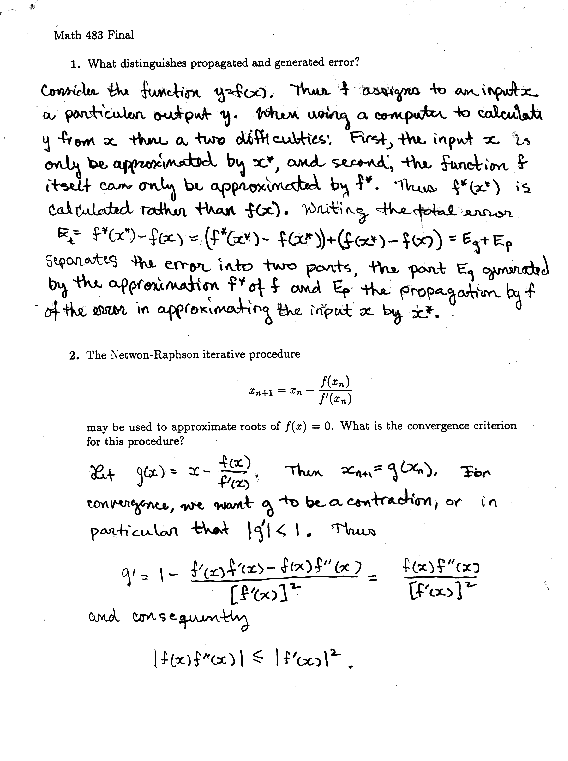 Math 483 Final
1. What distinguishes propagated and generated error?
Consider the function y=f(x). Thus f assigns to an input x
a particular output y. When using a computer to calculate
y from x there a two difficulties: First, the input x is
only be approximated by x*, and second, the function f
itself can only be approximated by f*. Thus f*(x*) is
calculated rather than f(x). Writing the total error
E_t = f*(x*)-f(x) = (f*(x*)-f(x*))+(f(x*)-f(x)) = E_g+E_p
separates the error into two parts, the part E_g generated
by the approximation f* of f and E_p the propagation by f
of the error in approximating the input x by x*.
2. The Netwon-Raphson iterative procedure
x_{n+1} = x_n - f(x_n)/f'(x_n)
may be used to approximate roots of f(x) = 0. What is the convergence criterion
for this procedure?
Let g(x) = x - f(x)/f'(x). Then x_{n+1} = g(x_n). For
convergence, we want g to be a contraction, or in
particular that |g'|<1. Thus
g' = 1 - (f'(x)f'(x)-f(x)f''(x))/[f'(x)]² = f(x)f''(x)/[f'(x)]²
and consequently
|f(x)f''(x)| ≤ |f'(x)|².